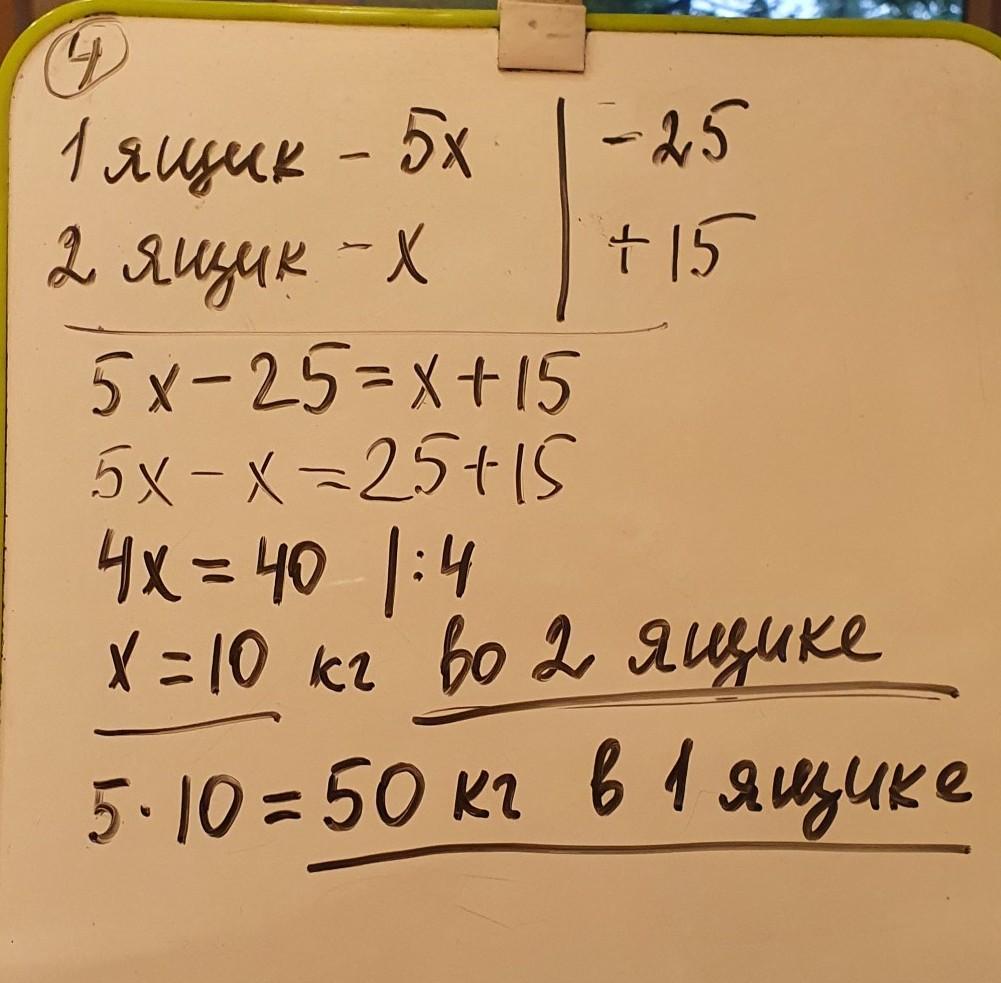 4
1 ящик - 5x | - 25
2 ящик - x | + 15
5x - 25 = x + 15
5x - x = 25 + 15
4x = 40 |:4
x = 10 кг во 2 ящике
5 · 10 = 50 кг в 1 ящике